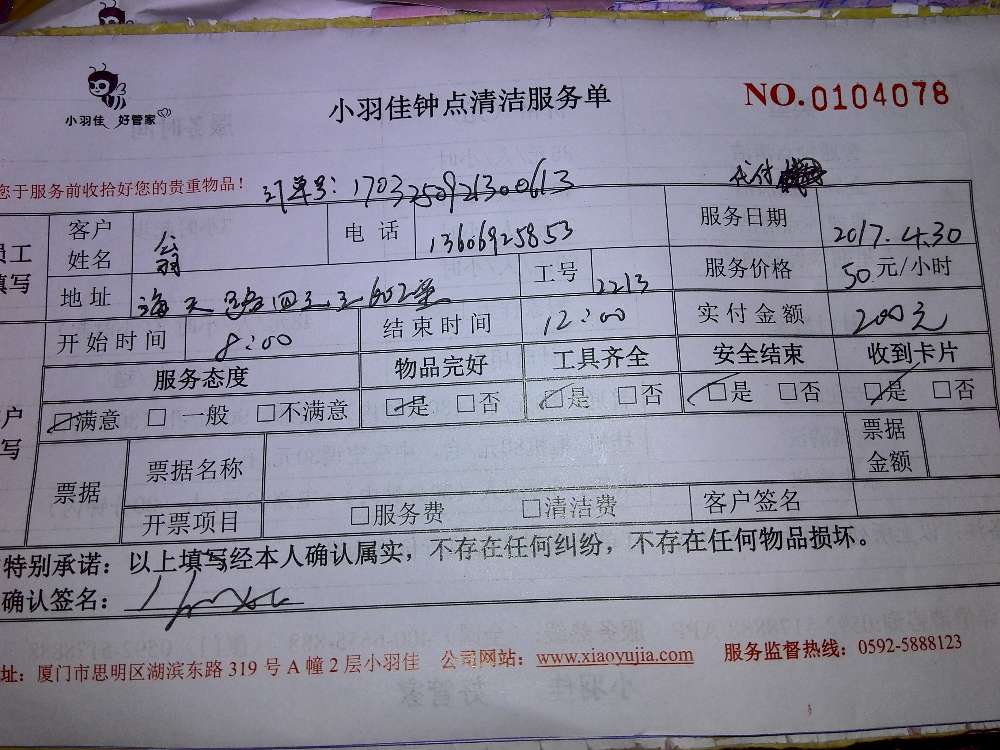 小羽佳 好管家
小羽佳钟点清洁服务单
NO.0104078
您于服务前收拾好您的贵重物品！
订单号：1703250921300613
代付
员工填写
客户姓名 翁 电话 13606925853 服务日期 2017.4.30
地址 海天路四 602室 工号 2213 服务价格 50元/小时
开始时间 8:00 结束时间 12:00 实付金额 200元
服务态度 物品完好 工具齐全 安全结束 收到卡片
户写
☑满意 □一般 □不满意 ☑是 □否 ☑是 □否 ☑是 □否 ☑是 □否
票据 票据名称 票据金额
开票项目 □服务费 □清洁费 客户签名
特别承诺：以上填写经本人确认属实，不存在任何纠纷，不存在任何物品损坏。
确认签名：
址：厦门市思明区湖滨东路319号A幢2层小羽佳 公司网站：www.xiaoyujia.com 服务监督热线：0592-5888123